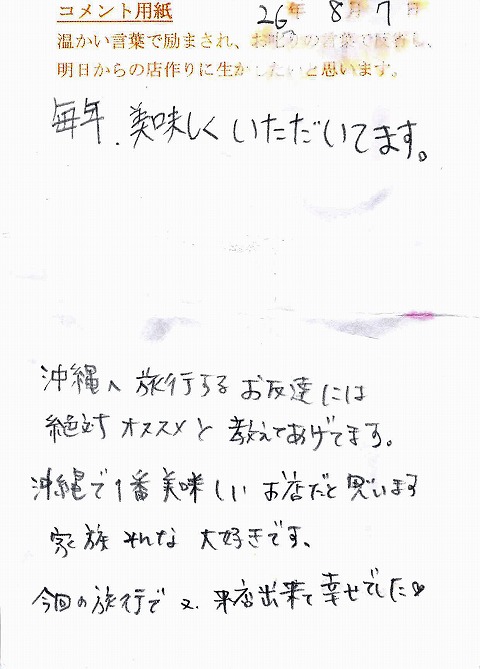 コメント用紙 26年 8月 7日
温かい言葉で励まされ、お叱りの言葉で反省し、
明日からの店作りに生かしたいと思います。
毎年、美味しくいただいてます。
沖縄へ旅行するお友達には
絶対オススメと教えてあげてます。
沖縄で1番美味しいお店だと思います
家族みんな大好きです、
今回の旅行で又、来店出来て幸せでした♡